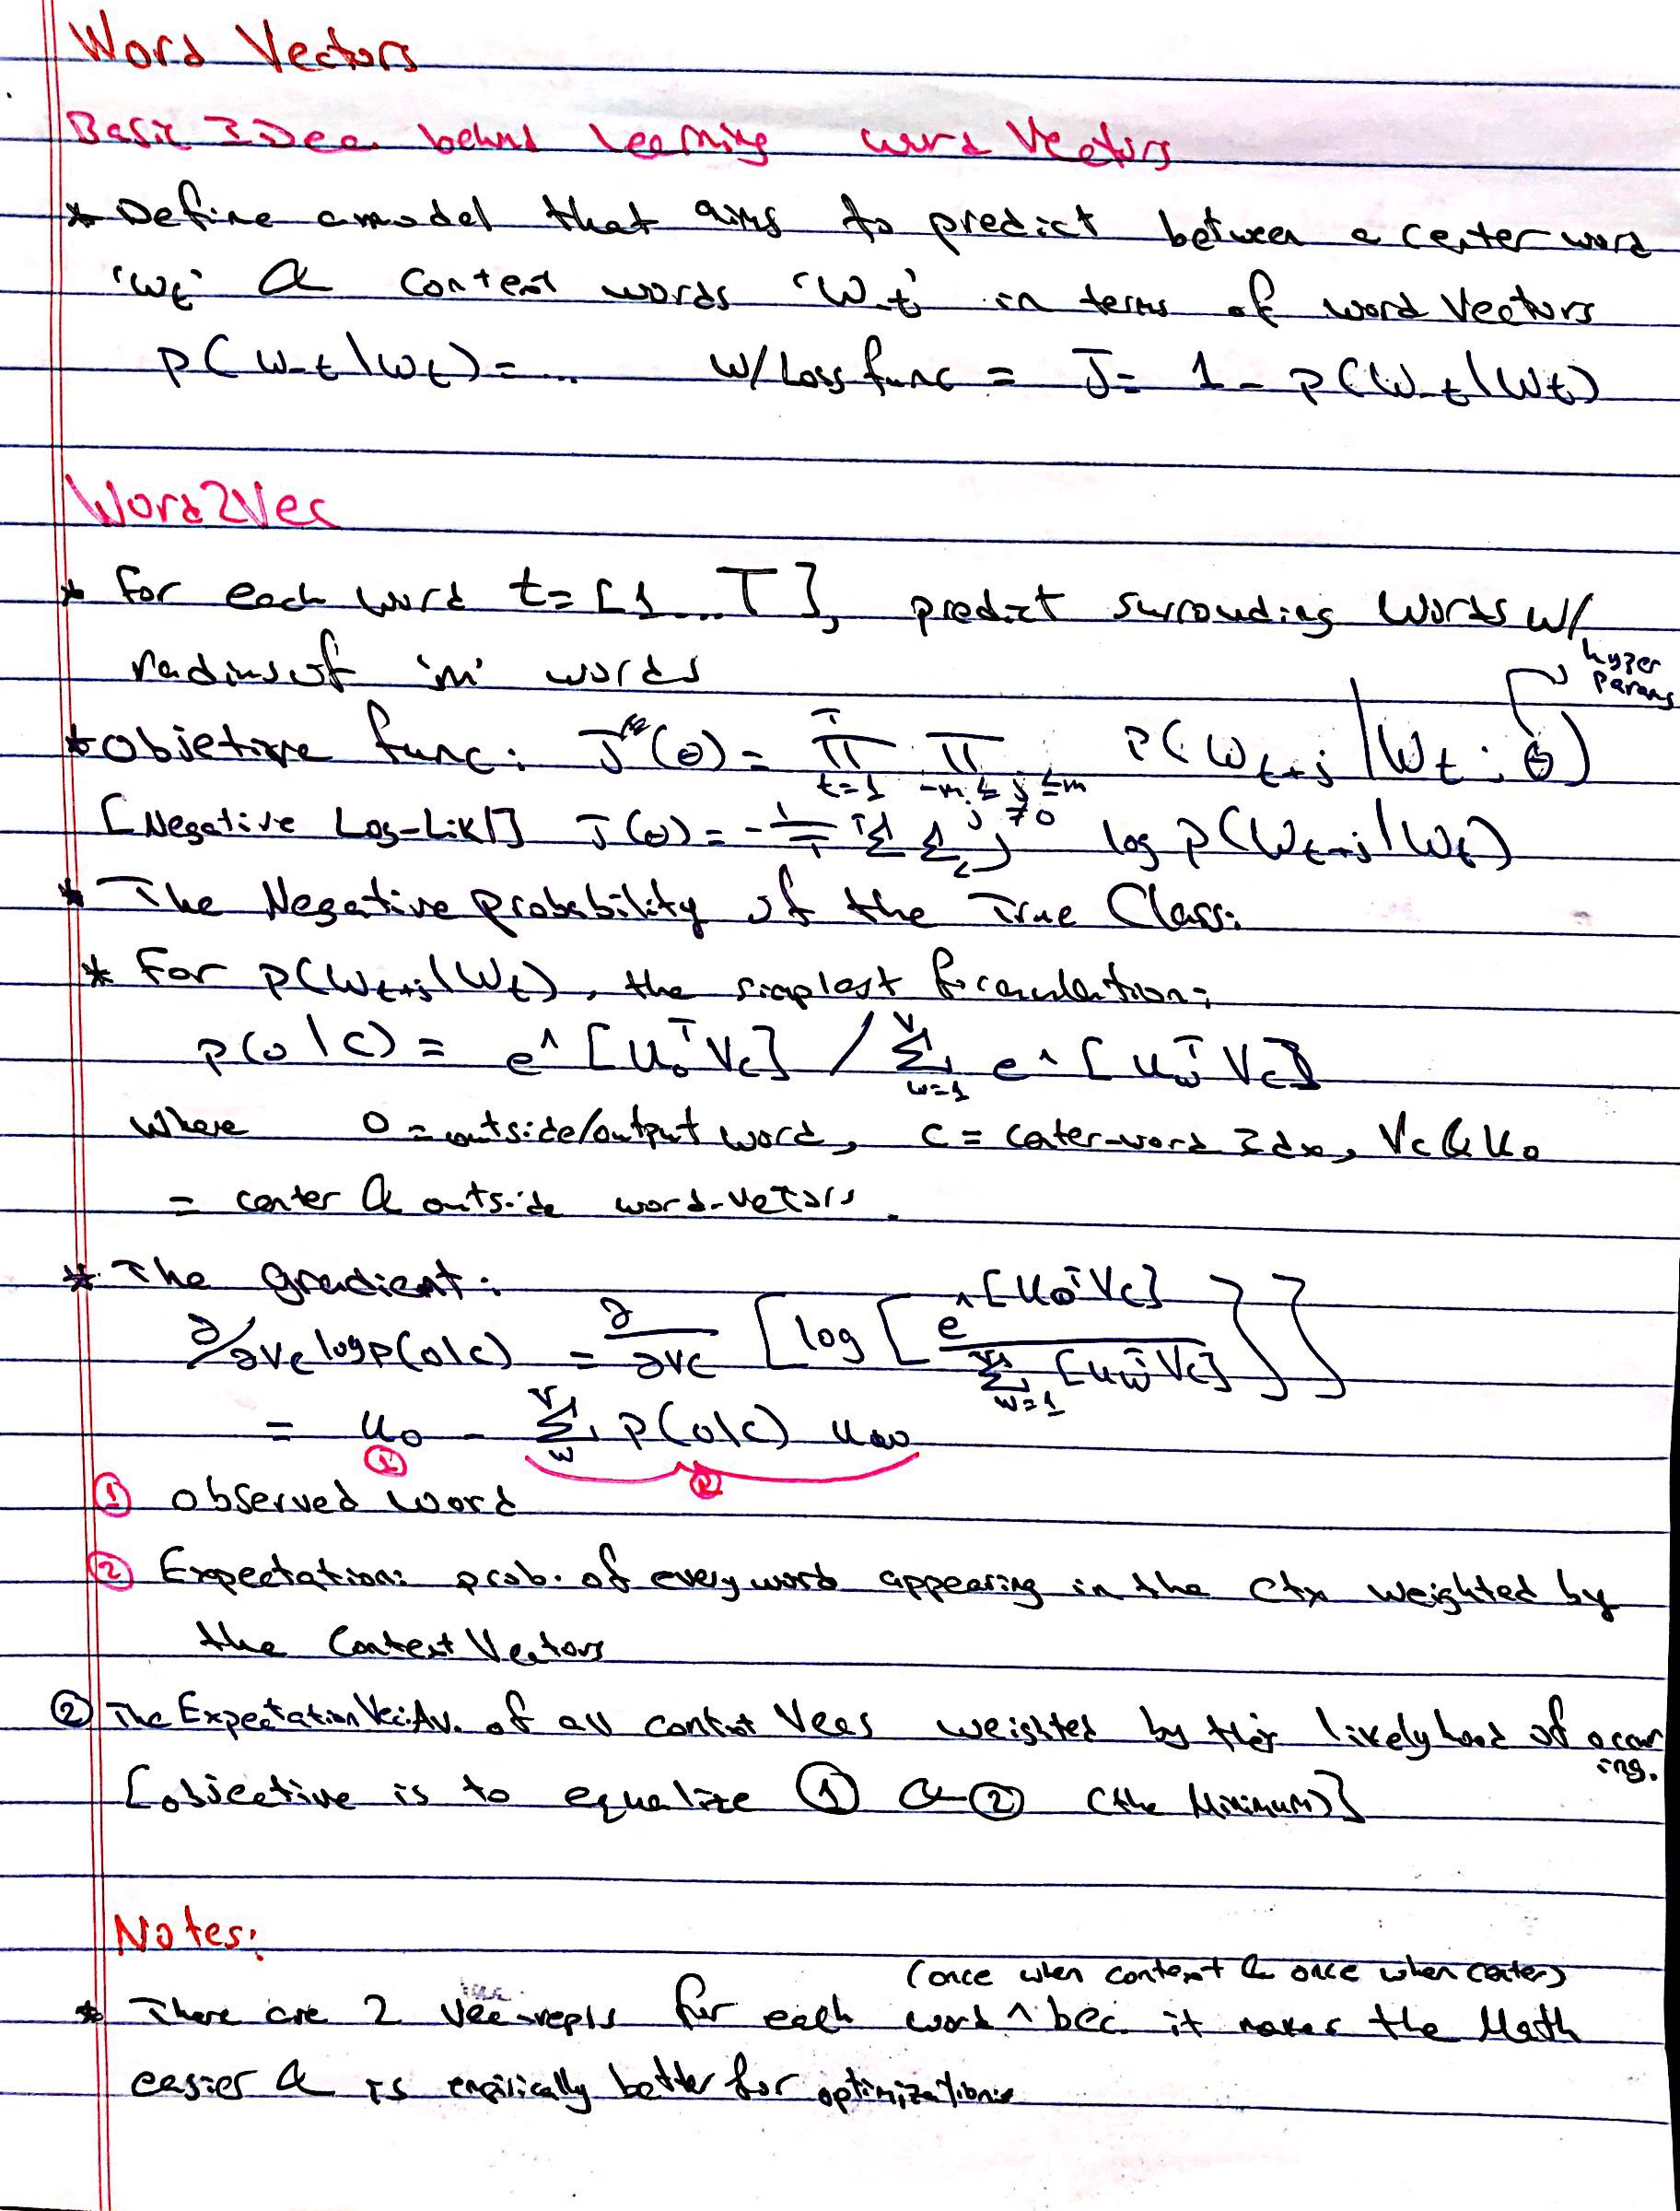 Word Vectors
Basic Idea behind learning word Vectors
* Define a model that aims to predict between a center word
'Wt' & Context words 'W-t' in terms of word Vectors
P(W-t|Wt) = ... w/ Loss func = J = 1 - P(W-t|Wt)
Word2Vec
* For each word t=[1...T], predict surrouding words w/
radius of 'm' words
hyper
params
* Objetive func: J(θ) = T∏t=1 ∏-m≤j≤m P(Wt+j|Wt;θ)
j≠0
[Negative Log-Likl] J(θ) = -1/T Σt Σj log P(Wt+j|Wt)
* The Negative probability of the True Class.
* For P(Wt+j|Wt), the simplest formulation:
P(o|c) = e^[uoᵀVc] / VΣw=1 e^[uwᵀVc]
Where o = outside/output word, c = center-word Idx, Vc & uo
= center & outside word-vetors.
* The gradient:
∂/∂vc log P(o|c) = ∂/∂vc [log [e^[uoᵀVc] / VΣw=1 [uwᵀVc]]]
= uo - VΣw P(o|c) uw
① ②
① observed word
② Expectation: prob. of every word appearing in the ctx weighted by
the Context Vectors
② The Expectation Vec: Av. of all context Vecs weighted by their likelyhood of occur
ing.
[objective is to equalize ① & ② (the Minimum)]
Notes:
(once when context & once when center)
* There are 2 vec-repls for each word ^ bec. it makes the Math
easier & is empirically better for optimization